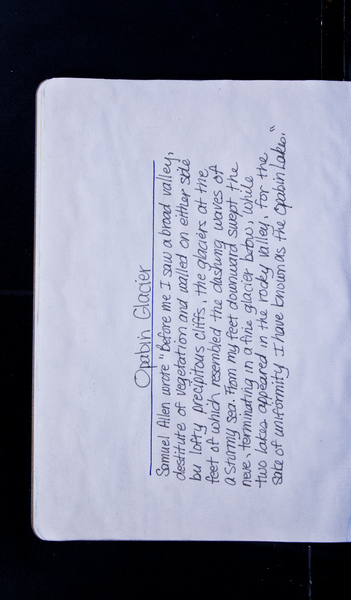 Opabin Glacier
Samuel Allen wrote "Before me I saw a broad valley,
destitute of vegetation and walled on either side
bu lofty precipitous cliffs, the glaciers at the
feet of which resembled the dashing waves of
a stormy sea. From my feet downward swept the
neve, terminating in a fine glacier below, while
two lakes appeared in the rocky valley. For the
sake of uniformity I have known as the Opabin Lakes."